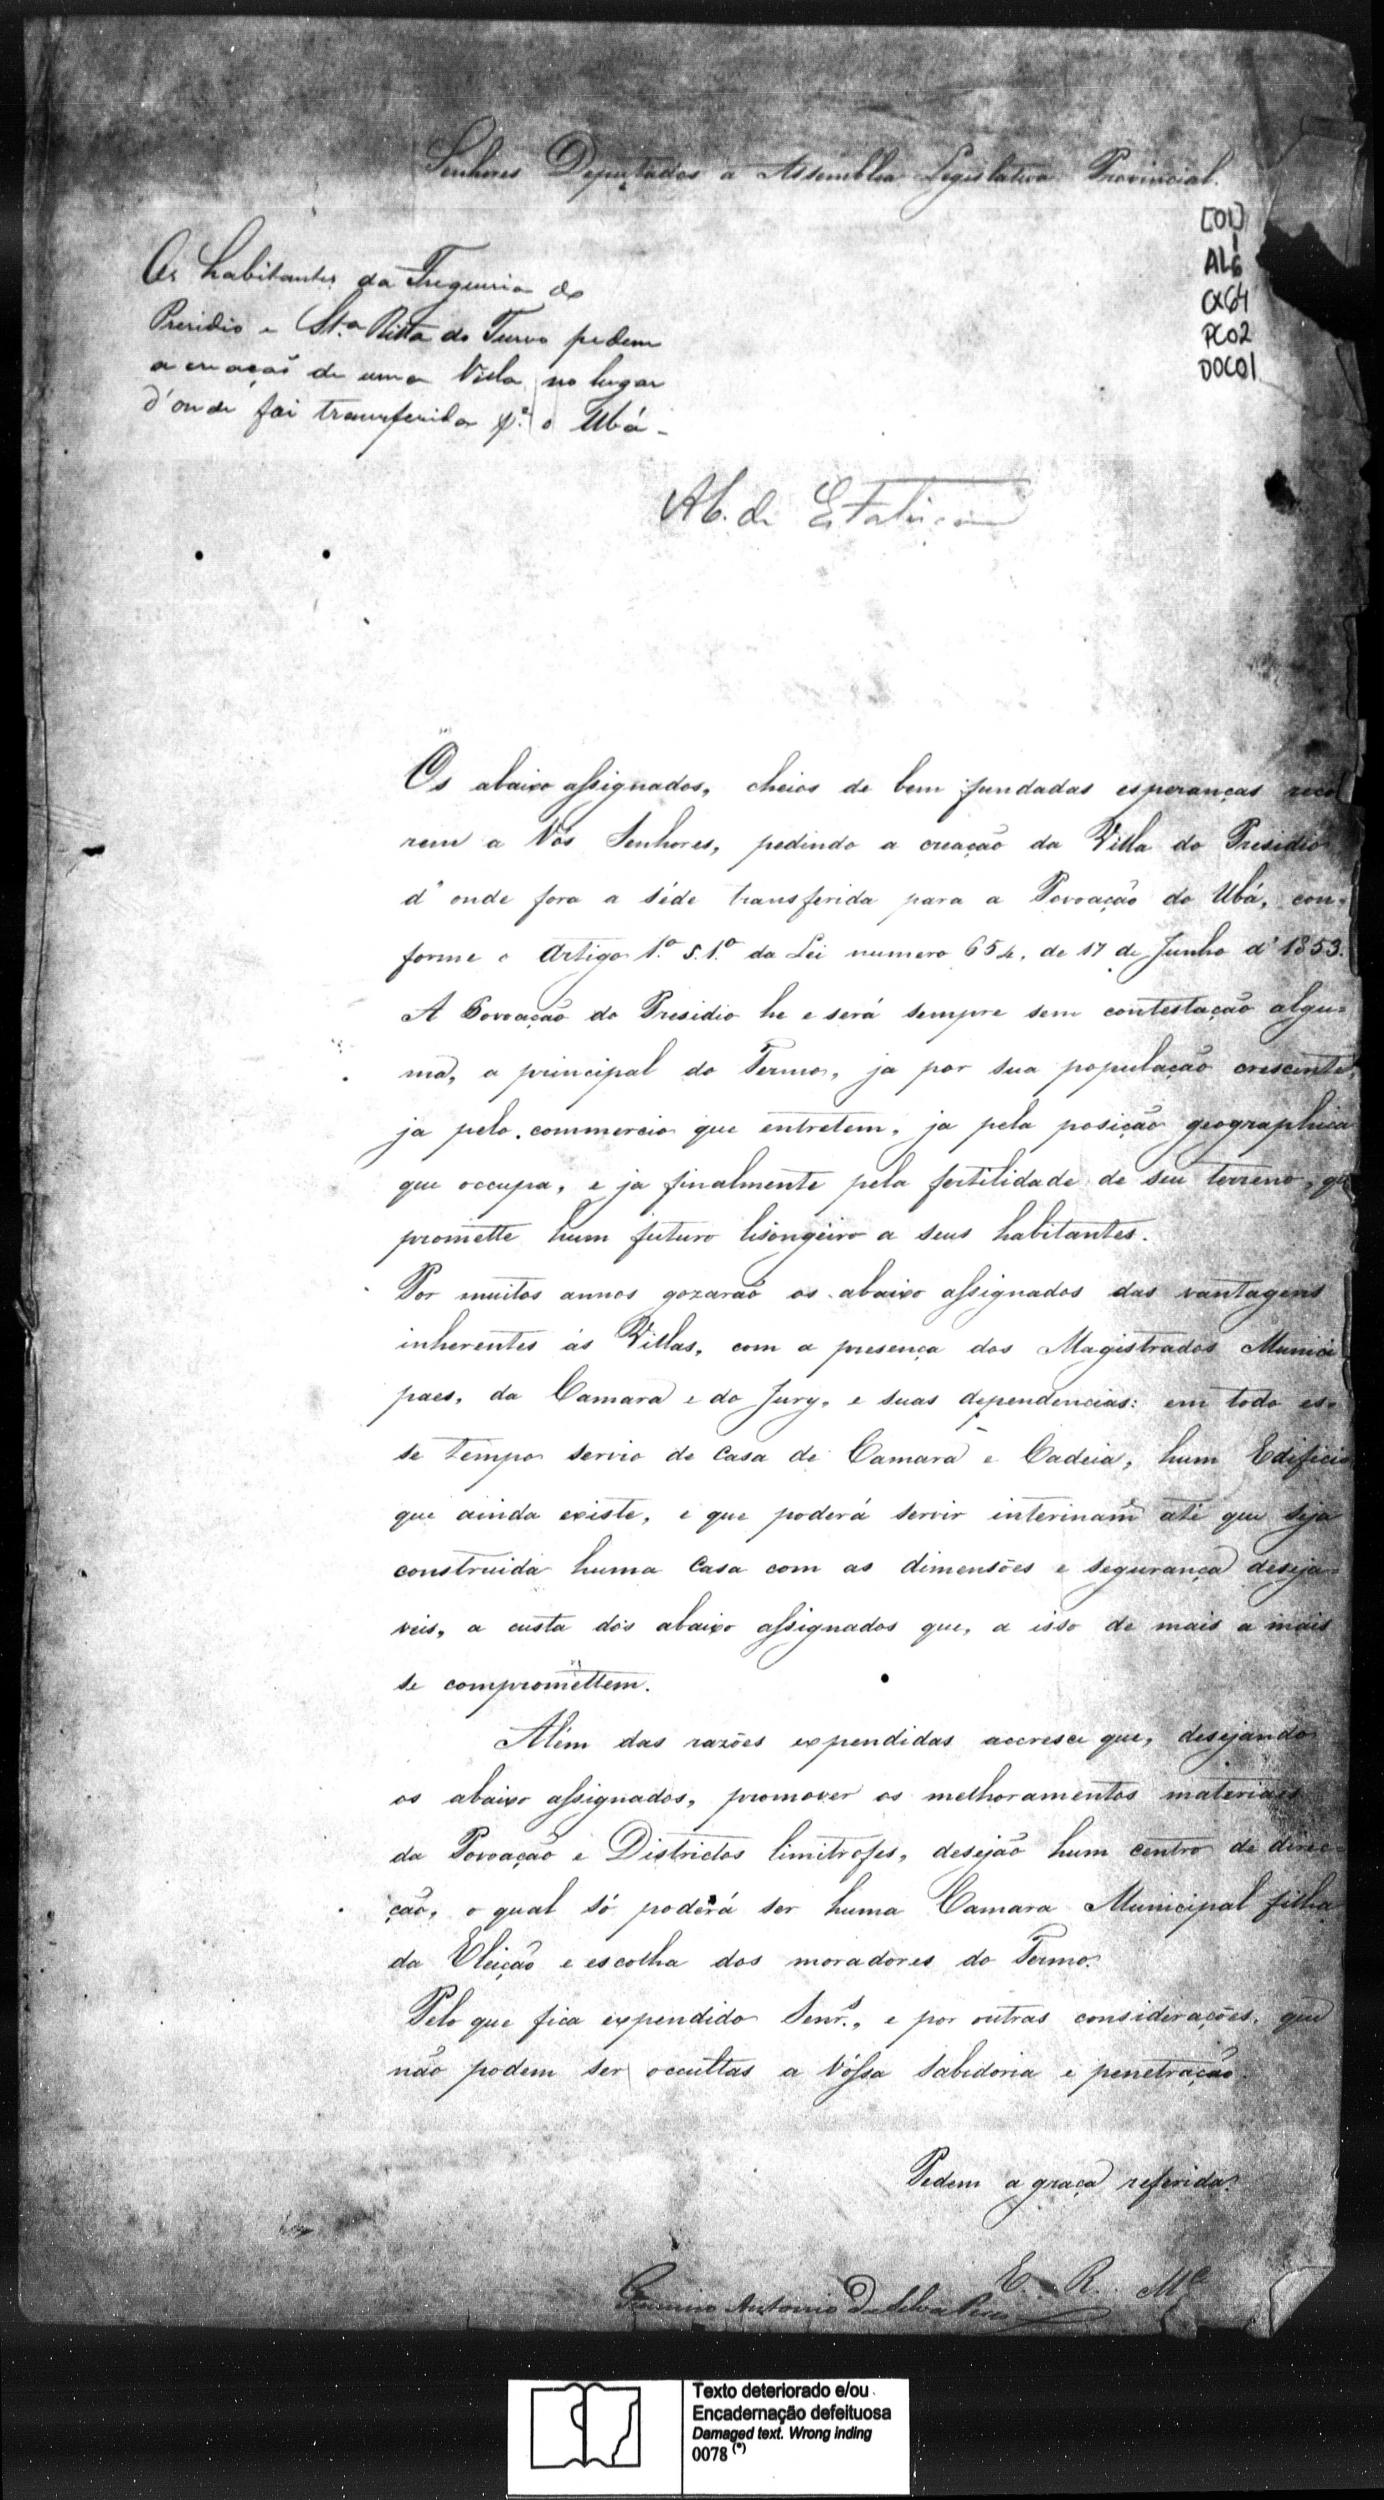 Senhores Deputados a Assemblea Legislativa Provincial.
[01]
AL6
CX64
PC02
DOC01
Os habitantes da Freguesia do
Presidio e Sta. Ritta do Turvo pedem
a creação de uma Villa no lugar
d'onde foi transferida pa. o Ubá-
Ab. de Estatistica
Os abaixo assignados, cheios de bem fundadas esperanças recor
rem a Vós Senhores, pedindo a creação da Villa do Presidio
d'onde fora a séde transferida para a Povoação do Ubá, con-
forme o Artigo 1.º §.1.º da Lei numero 654, de 17 de Junho d'1853.
A Povoação do Presidio he e será sempre sem contestação algu-
ma, a principal do Termo, ja por sua população crescente,
ja pelo commercio que entretem, ja pela posição geographica
que occupa, e ja finalmente pela fertilidade de seu terreno, que
promette hum futuro lisongeiro a seus habitantes.
Por muitos annos gozarão os abaixo assignados das vantagens
inherentes ás Villas, com a presença dos Magistrados Munici
paes, da Camara e do Jury, e suas dependencias: em todo es-
se tempo servio de Casa de Camara e Cadeia, hum Edificio
que ainda existe, e que poderá servir interinamᵉ até que seja
construida huma Casa com as dimensões e segurança deseja-
veis, a custa dos abaixo assignados que, a isso de mais a mais
se compromettem.
Além das razões expendidas accresce que, desejando
os abaixo assignados, promover os melhoramentos materiaes
da Povoação e Districtos limitrofes, desejão hum centro de direc-
ção, o qual só poderá ser huma Camara Municipal filha
da Eleição e escolha dos moradores do Termo.
Pelo que fica expendido Senr.ˢ, e por outras considerações, que
não podem ser occultas a Vóssa Sabedoria e penetração.
Pedem a graça referida.
E. R. Mᶜᵉ
Antonio da Silva
Texto deteriorado e/ou
Encadernação defeituosa
Damaged text. Wrong inding
0078 (*)